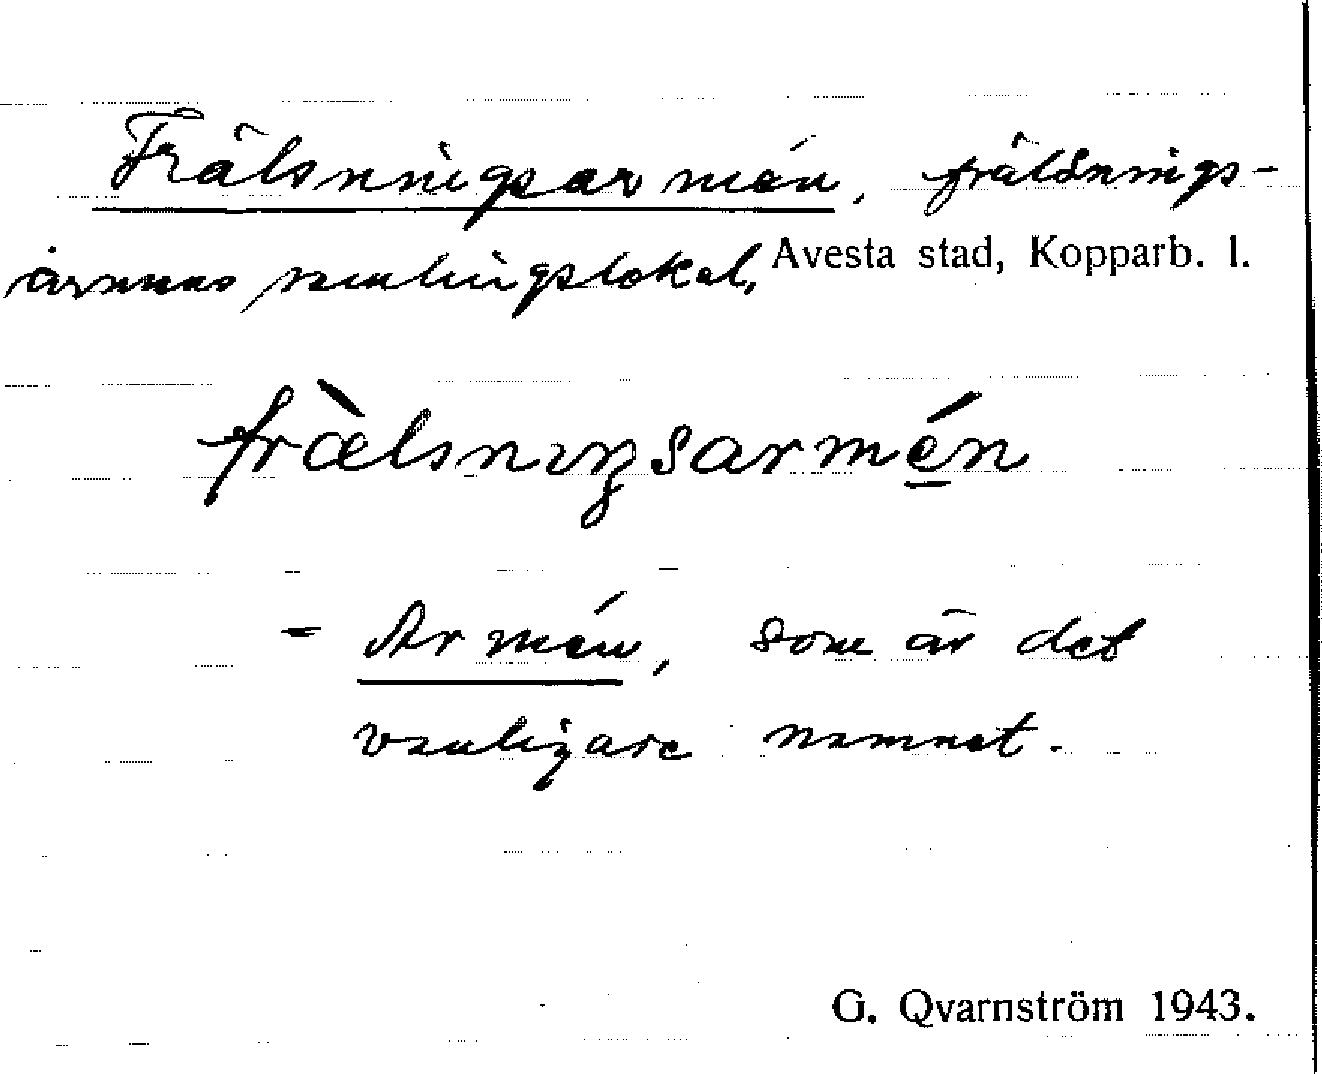 Frälsningsarmén, frälsnings-
armens samlingslokal, Avesta stad, Kopparb. l.
fràelsnıŋsarmén
= Armén, som är det
vanligare namnet.
G. Qvarnström 1943.